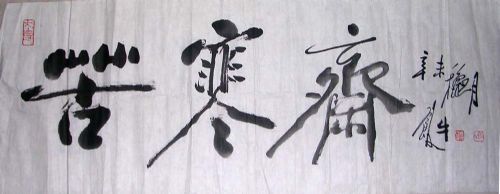 苦寒齋
辛未穐月
牛